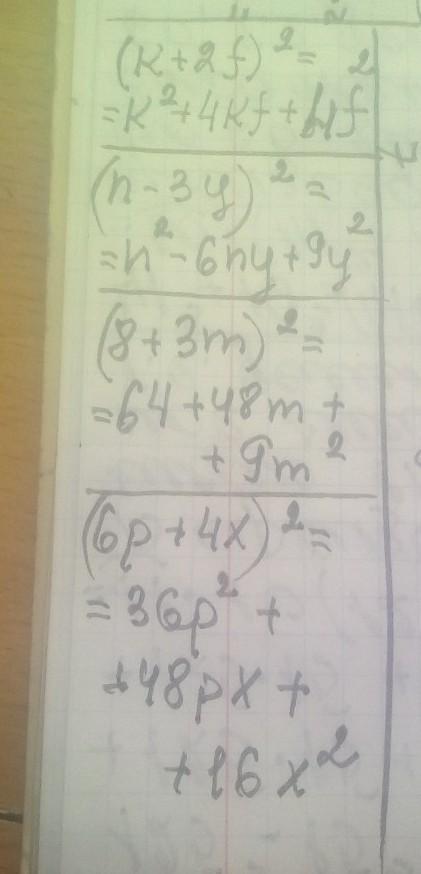 (k+2f)²=
=k²+4kf+4f²
(n-3y)²=
=n²-6ny+9y²
(8+3m)²=
=64+48m+
+9m²
(6p+4x)²=
=36p²+
+48px+
+16x²